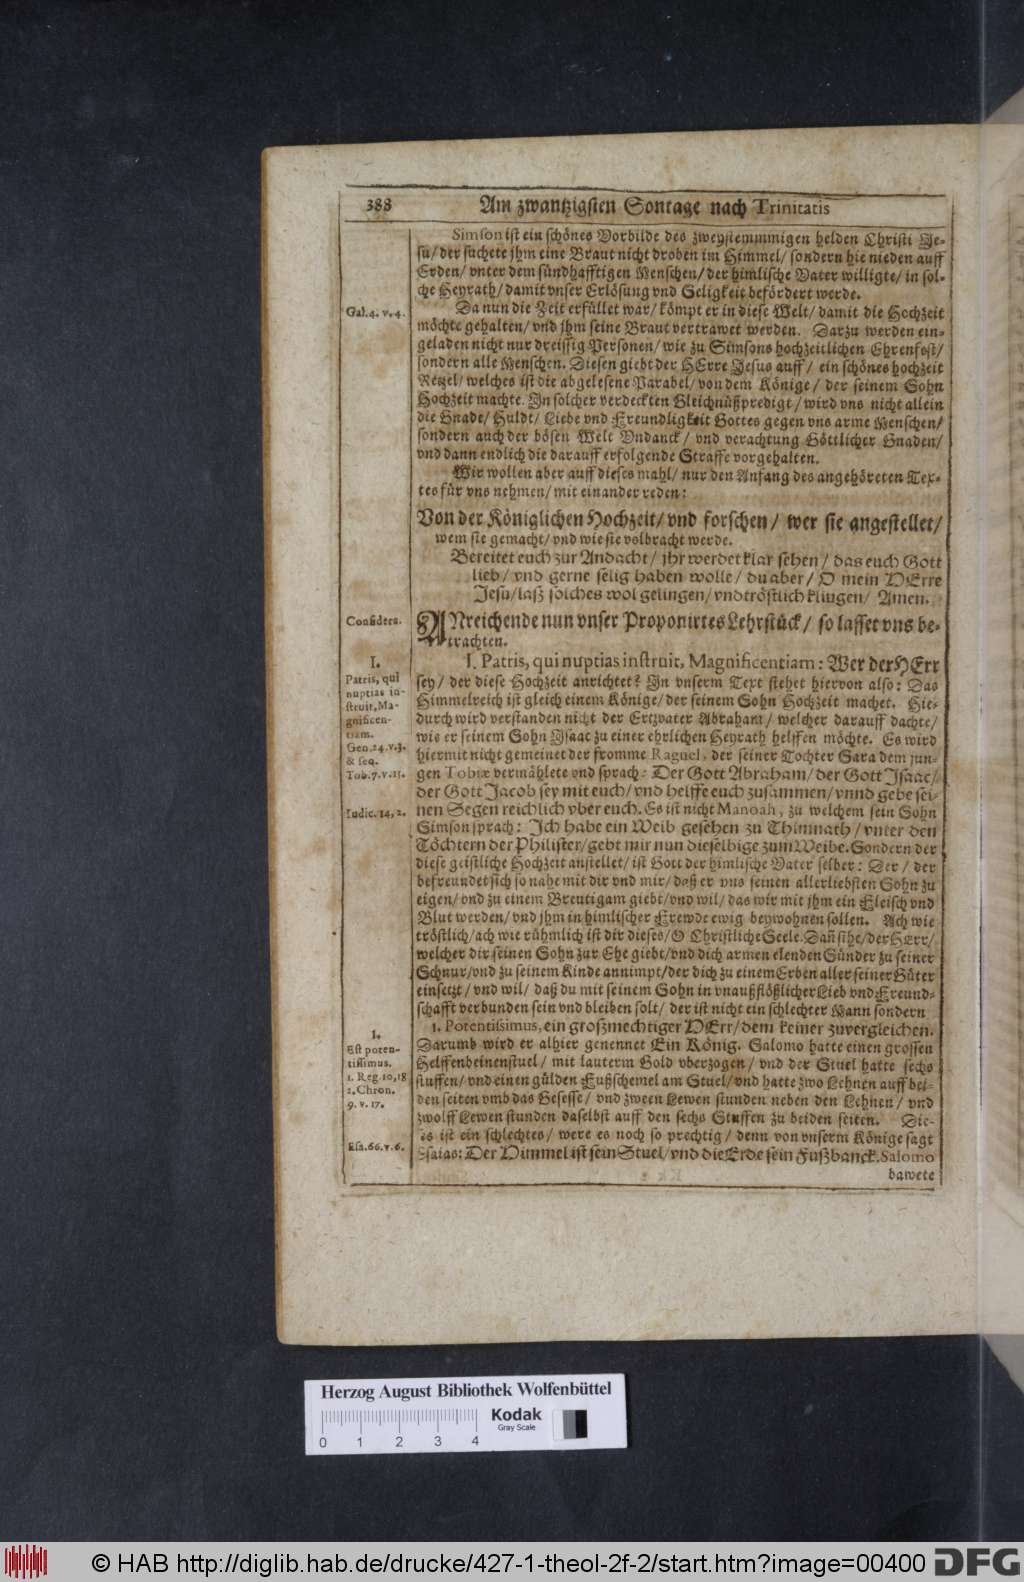 388 Am zwantzigsten Sontage nach Trinitatis
Simson ist ein schönes Vorbilde des zweystemmigen helden Christi Je-
su/ der suchete jhm eine Braut nicht droben im Himmel/ sondern hie nieden auff
Erden/ vnter dem sündhafftigen Menschen/ der himlische Vater willigte/ in sol-
che Heyrath/ damit vnser Erlösung vnd Seligkeit befördert werde.
Gal. 4. v. 4.
Da nun die Zeit erfüllet war/ kömpt er in diese Welt/ damit die Hochzeit
möchte gehalten/ vnd jhm seine Braut vertrawet werden. Darzu werden ein-
geladen nicht nur dreissig Personen/ wie zu Simsons hochzeitlichen Ehrenfest/
sondern alle Menschen. Diesen giebt der HErre Jesus auff/ ein schönes hochzeit
Retzel/ welches ist die abgelesene Parabel/ von dem Könige/ der seinem Sohn
Hochzeit machte. In solcher verdeckten Gleichnüßpredigt/ wird vns nicht allein
die Gnade/ Huldt/ Liebe vnd Freundligkeit Gottes gegen vns arme Menschen/
sondern auch der bösen Welt Vndanck/ vnd verachtung Göttlicher Gnaden/
vnd dann endlich die darauff erfolgende Straffe vorgehalten.
Wir wollen aber auff dieses mahl/ nur den Anfang des angehöreten Tex-
tes für vns nehmen/ mit einander reden:
Von der Königlichen Hochzeit/ vnd forschen/ wer sie angestellet/
wem sie gemacht/ vnd wie sie volbracht werde.
Bereitet euch zur Andacht/ jhr werdet klar sehen/ das euch Gott
lieb/ vnd gerne selig haben wolle/ du aber/ O mein HErre
Jesu/ laß solches wol gelingen/ vnd tröstlich klingen/ Amen.
Considera.
ANreichende nun vnser Proponirtes Lehrstück/ so lasset vns be-
trachten.
I.
Patris, qui
nuptias in-
struit, Ma-
gnificen-
tiam.
Gen. 24. v. 3.
& seq.
Tob. 7. v. 15.
Iudic. 14, 2.
I. Patris, qui nuptias instruit, Magnificentiam: Wer der HErr
sey/ der diese Hochzeit anrichtet? In vnserm Text stehet hiervon also: Das
Himmelreich ist gleich einem Könige/ der seinem Sohn Hochzeit machet. Hie-
durch wird verstanden nicht der Ertzvater Abraham/ welcher darauff dachte/
wie er seinem Sohn Isaac zu einer ehrlichen Heyrath helffen möchte. Es wird
hiermit nicht gemeinet der fromme Raguel, der seiner Tochter Sara dem jun-
gen Tobiæ vermählete vnd sprach: Der Gott Abraham/ der Gott Isaac/
der Gott Jacob sey mit euch/ vnd helffe euch zusammen/ vnnd gebe sei-
nen Segen reichlich vber euch. Es ist nicht Manoah, zu welchem sein Sohn
Simson sprach: Ich habe ein Weib gesehen zu Thimnath/ vnter den
Töchtern der Philister/ gebt mir nun dieselbige zum Weibe. Sondern der
diese geistliche Hochzeit anstellet/ ist Gott der himlische Vater selber: Der/ der
befreundet sich so nahe mit dir vnd mir/ daß er vns seinen allerliebsten Sohn zu
eigen/ vnd zu einem Breutigam giebt/ vnd wil/ das wir mit jhm ein Fleisch vnd
Blut werden/ vnd jhm in himlischer Frewde ewig beywohnen sollen. Ach wie
tröstlich/ ach wie rühmlich ist dir dieses/ O Christliche Seele. Dan̄ sihe/ der HErr/
welcher dir seinen Sohn zur Ehe giebt/ vnd dich armen elenden Sünder zu seiner
Schnur/ vnd zu seinem Kinde annimpt/ der dich zu einem Erben aller seiner Güter
einsetzt/ vnd wil/ daß du mit seinem Sohn in vnaußflößlicher Lieb vnd Freund-
schafft verbunden sein vnd bleiben solt/ der ist nicht ein schlechter Mann sondern
1.
Est poten-
tissimus.
1. Reg. 10, 18
2, Chron.
9. v. 17.
Esa. 66. v. 6.
1. Potentissimus, ein großmechtiger HErr/ dem keiner zuvergleichen.
Darumb wird er alhier genennet Ein König. Salomo hatte einen grossen
Helffenbeinenstuel/ mit lauterm Gold vberzogen/ vnd der Stuel hatte sechs
stuffen/ vnd einen gülden Fußschemel am Stuel/ vnd hatte zwo Lehnen auff bei-
den seiten vmb das Gesesse/ vnd zween Lewen stunden neben den Lehnen/ vnd
zwolff Lewen stunden daselbst auff den sechs Stuffen zu beiden seiten. Die-
es ist ein schlechtes/ were es noch so prechtig/ denn von vnserm Könige sagt
Esaias: Der Himmel ist sein Stuel/ vnd die Erde sein Fußbanck. Salomo
bawete
Herzog August Bibliothek Wolfenbüttel
Kodak
Gray Scale
0 1 2 3 4
© HAB http://diglib.hab.de/drucke/427-1-theol-2f-2/start.htm?image=00400 DFG